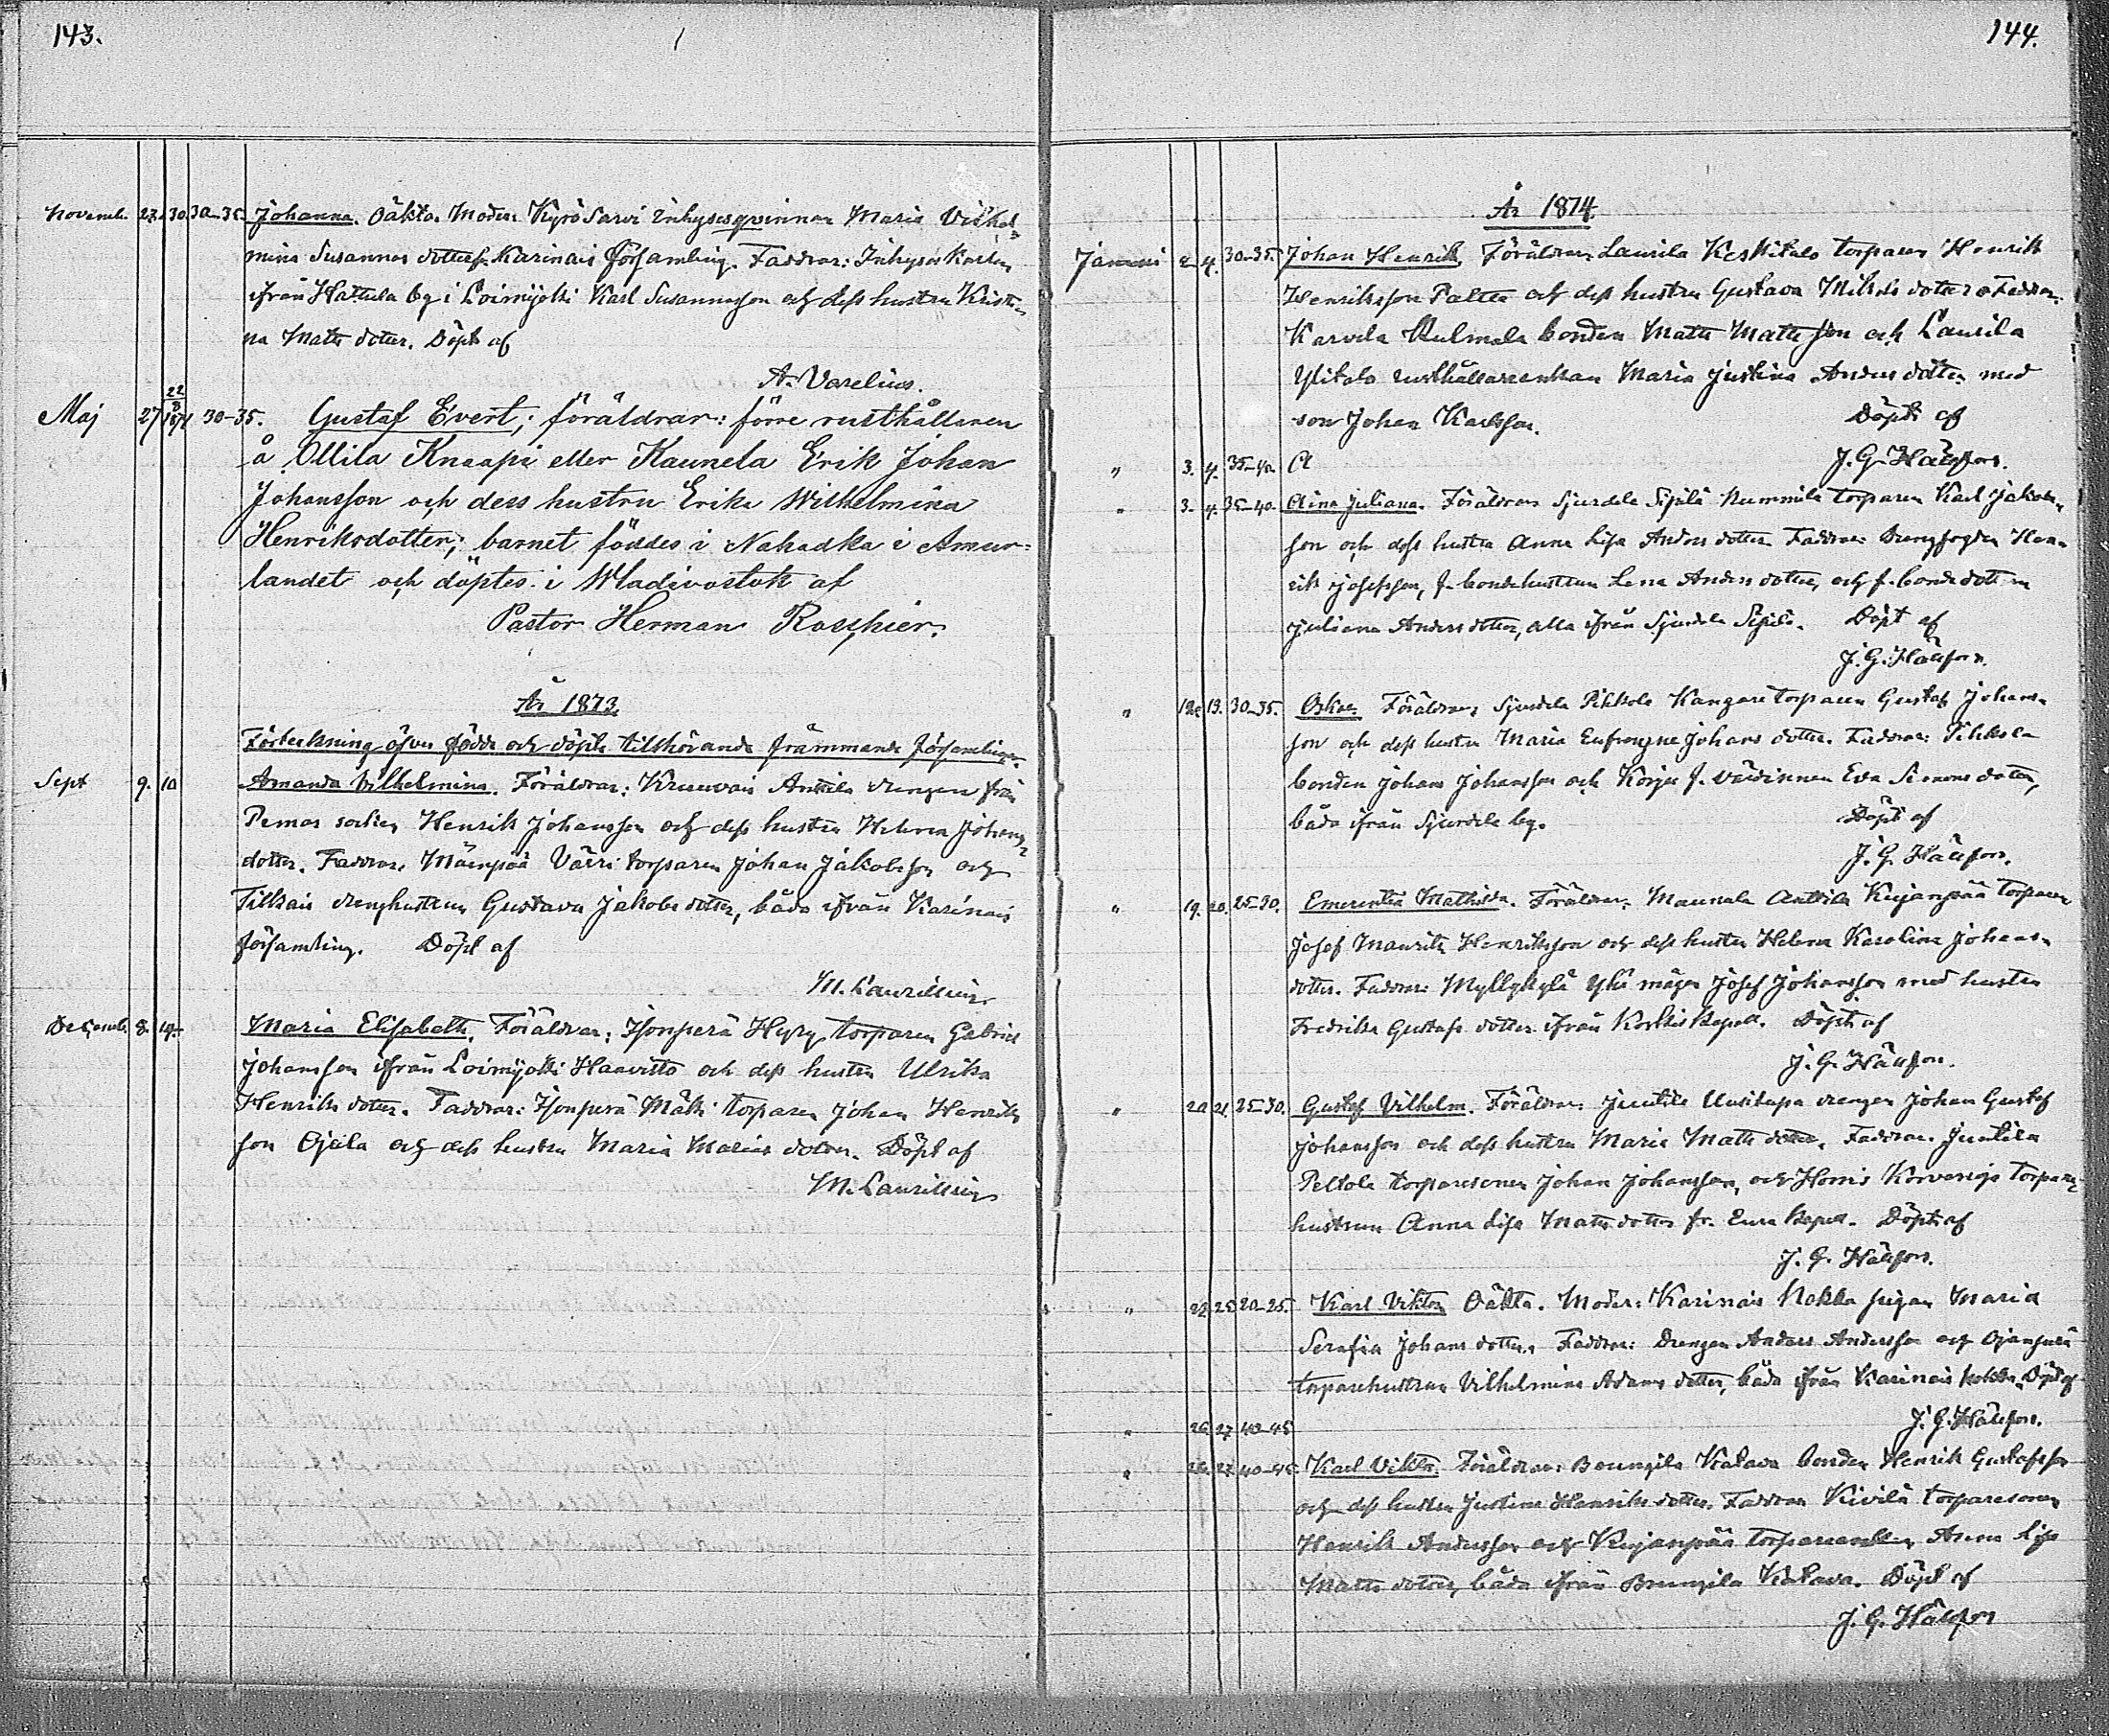 143.
Novemb. 27. 30. 30-35. Johanna. Oäkta. Moder: Kyrö Sarvi inhysesqvinnan Maria Vilhel-
mina Susannas dotter fr. Karinais församling. Faddrar: Inhyses karlen
ifrån Hattula by i Loimijoki Karl Susannasson och dess hustru Kristi-
na Mats dotter. Döpt af
A. Varelius.
Maj 27 22/9 1874 30-35. Gustaf Evert; föräldrar: förre rusthållaren
å Ollila Knaapi eller Kaunela Erik Johan
Johansson och dess hustru Erika Wilhelmina
Henriksdotter; barnet föddes i Nahadka i Amur-
landet och döptes i Wladivostok af
Pastor Herman Roschier.
År 1873.
Förteckning öfver födde och döpte tillhörande främmande församlingar.
Sept 9. 10 Amanda Vilhelmina. Föräldrar: Kruuvais Anttila drengen från
Pemar socken Henrik Johansson och dess hustru Helena Johans
dotter. Faddrar: Mäenpää Värri torparen Johan Jakobsson och
Tillkais drenghustrun Gustava Jakobs dotter, båda ifrån Karinais
församling. Döpt af
M. Laurellius
December 8. 14. Maria Elisabeth. Föräldrar: Isonperä Hyry torparen Gabriel
Johansson ifrån Loimijoki Haavisto och dess hustru Ulrika
Henriks dotter. Faddrar: Isonperä Mäki torparen Johan Henriks
son Ojala och dess hustru Maria Marias dotter. Döpt af
M. Laurellius
144.
År 1874.
Januari 2. 4. 30-35. Johan Henrik. Föräldrar: Laurila Keskitalo torparen Henrik
Henriksson Palten och dess hustru Gustava Mikels dotter. Faddrar:
Karvela Kulmala bonden Matts Mattsson och Laurila
Ylitalo rusthållareenkan Maria Justina Anders dotter med
son Johan Karlsson. Döpt af
" 3. 4. 35-40. A J. G. Hällfors.
" 3. 4. 35-40. Aina Juliana. Föräldrar: Sjurdela Sipilä Nummila torparen Karl Jakobs-
son och dess hustru Anna Lisa Anders dotter. Faddrar: Drengfogden Hen-
rik Josefsson, f. bondehustrun Lena Anders dotter, och f. bonde dottern
Juliana Anders dotter, alla ifrån Sjurdela Sipilä. Döpt af
J. G. Hällfors.
" 12. 13. 30-35. Oskar. Föräldrar: Sjurdela Pikkola Kangare torparen Gustaf Johans-
son och dess hustru Maria Eufrosyne Johans dotter. Faddrar: Pikkola
bonden Johan Johansson och Korpi f. värdinnan Eva Simons dotter,
båda ifrån Sjurdela by. Döpt af
J. G. Hällfors.
" 19. 20. 25-30. Emerentia Mathilda. Föräldrar: Maunula Anttila Kujanpää torparen
Josef Maurits Henriksson och dess hustru Helena Karolina Johans-
dotter. Faddrar: Myllykylä Yli mågen Josef Johansson med hustru
Fredrika Gustafs dotter ifrån Koskis Kapell. Döpt af
J. G. Hällfors.
" 20. 21. 25-30. Gustaf Vilhelm. Föräldrar: Juntila Uusitupa drengen Johan Gustaf
Johansson och dess hustru Maria Mats dotter. Faddrar: Juntila
Peltola torparesonen Johan Johansson, och Honis Korvenoja torpare
hustrun Anna Lisa Mats dotter fr. Eura Kapell. Döpt af
J. G. Hällfors.
" 22. 25. 20-25. Karl Viktor Oäkta. Moder: Karinais Nokka pigan Maria
Serafia Johans dotter. Faddrar: Drengen Anders Andersson och Ojanperä
torparehustrun Vilhelmina Adams dotter, båda ifrån Karinais Nokka. Döpt af
" 26. 27. 40-45 J. G. Hällfors.
" 26. 27. 40-45 Karl Viktor. Föräldrar: Brungila Katava bonden Henrik Gustafsson
och dess hustru Justina Henriks dotter. Faddrar Kivilä torparesonen
Henrik Andersson och Kujanpää torpareenkan Anna Lisa
Mats dotter, båda ifrån Brungila Katava. Döpt af
J. G. Hällfors